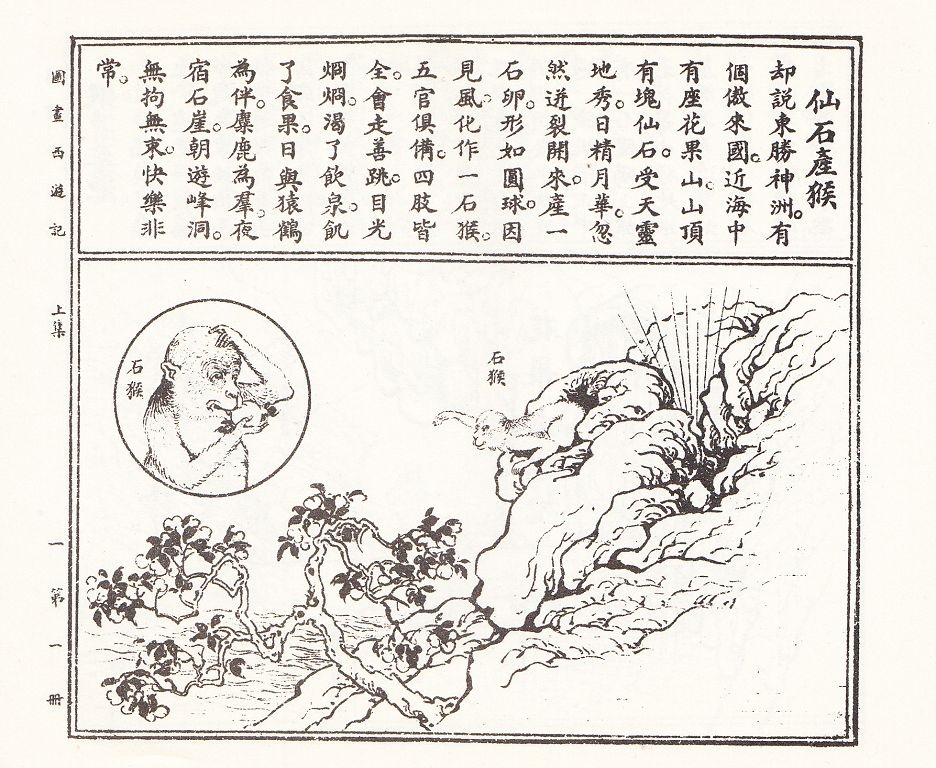 仙石產猴
却説東勝神洲。有
個傲來國。近海中
有座花果山。山頂
有塊仙石。受天靈
地秀。日精月華。忽
然迸裂開來。產一
石卵。形如圓球。因
見風。化作一石猴。
五官俱備。四肢皆
全。會走善跳。目光
烱烱。渴了飲泉。飢
了食果。日與猿鶴
為伴。麋鹿為羣。夜
宿石崖。朝遊峰洞。
無拘無束。快樂非
常。
圖畫西遊記
上集
一
第一冊
石猴
石猴